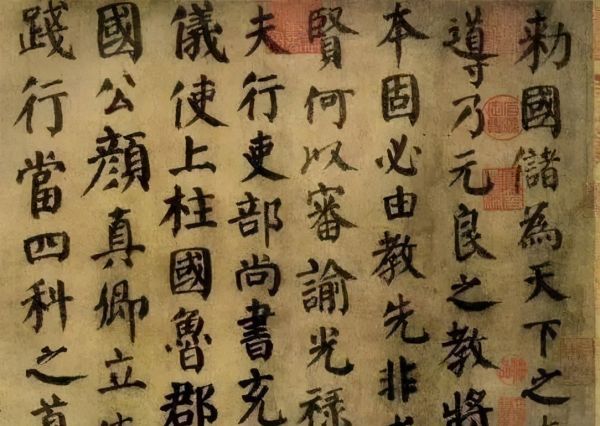 勅國儲為天下之
導乃元良之教將
本固必由教先非
賢何以審諭光祿
夫行吏部尚書充
儀使上柱國魯郡
國公顏真卿立
踐行當四科之首